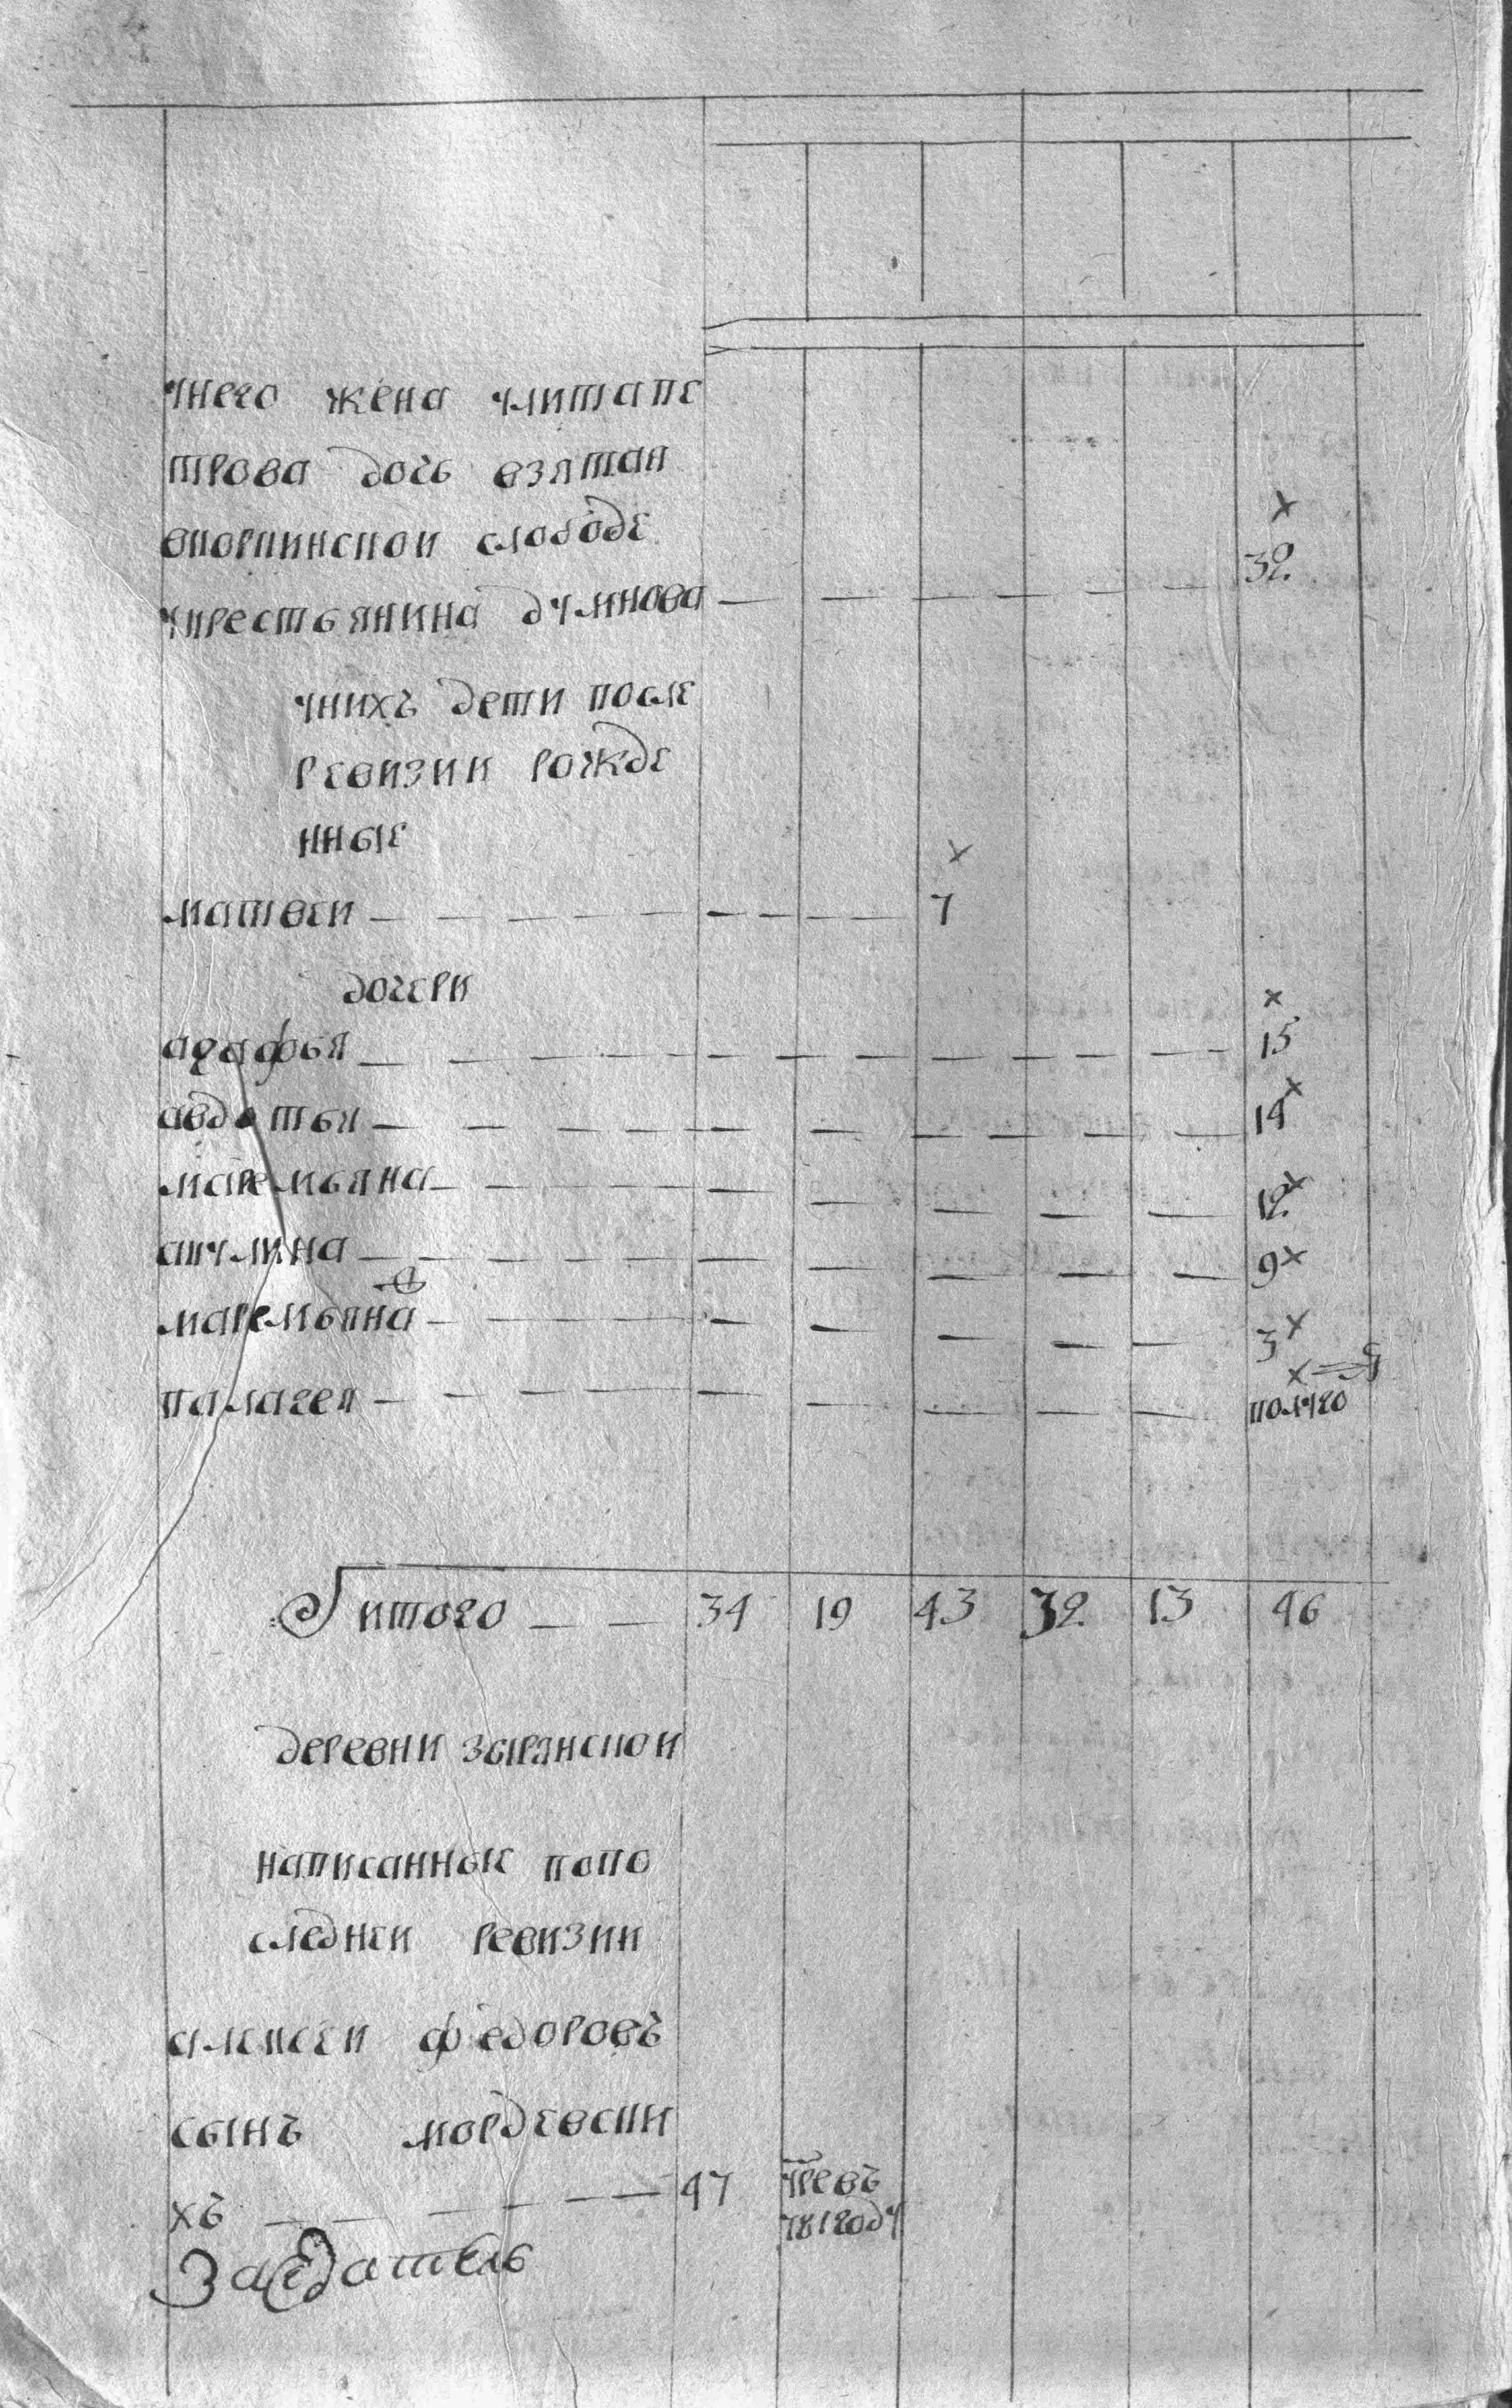 унего жена улитапе
трова дочь взятая
вкоркинской слободе
укрестьянина думнова — — — — — 32
×
унихъ дети после
ревизии рожде
нные
×
матвеи — — — — — 7
дочери
×
агафья — — — — — 15
авдотья — — — — — 14 ×
маремьяна — — — — — 12 ×
акулина — — — — — 9 ×
маремьяна — — — — — 3 ×
палагея — — — — — полуго ×
итого — — 34 19 43 32 13 46
деревни зырянской
написанные попо
следнеи ревизии
алексеи федоровъ
сынъ мордевски
хъ — — — — — 47 умревъ
781 году
Заседатель